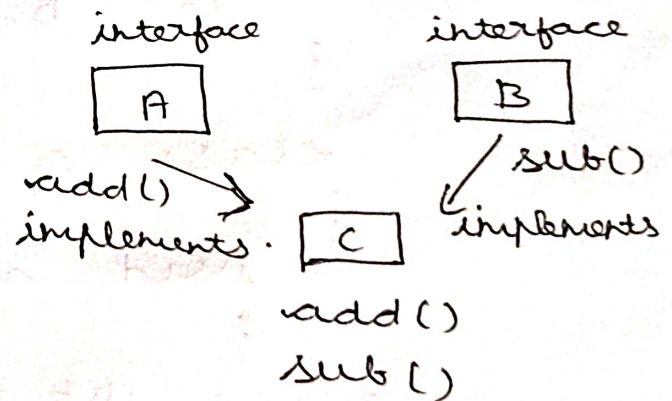 interface interface
A B
add() sub()
implements. C implements
add()
sub()